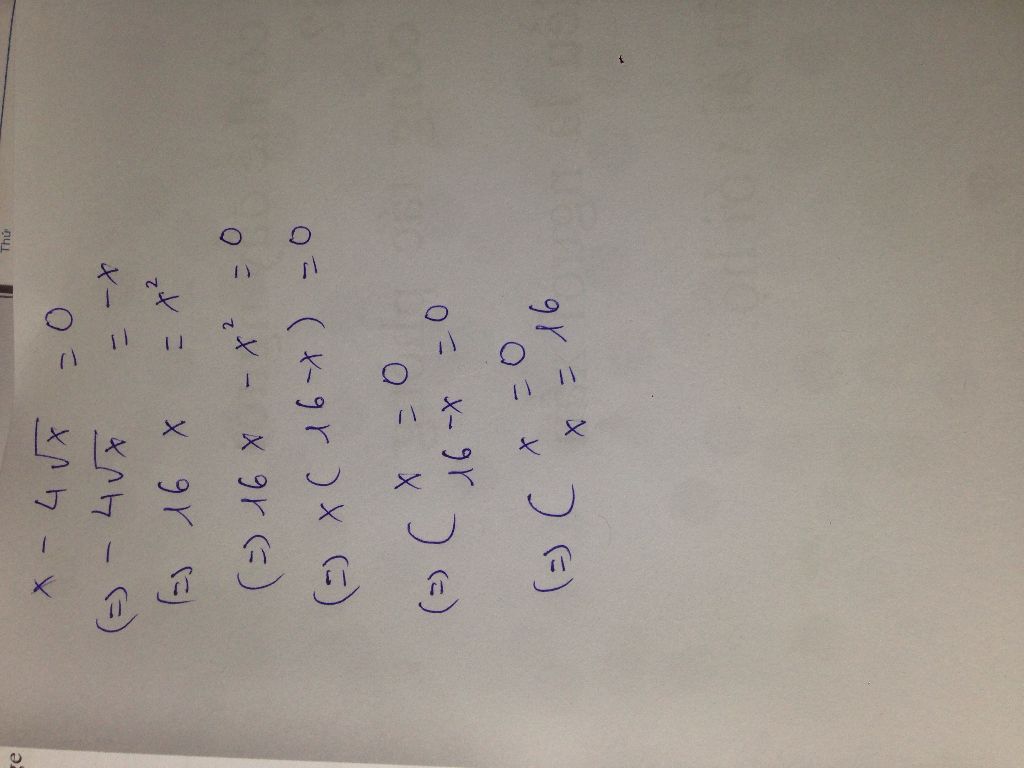 x - 4√x = 0
(=) - 4√x = -x
(=) 16 x = x²
(=) 16 x - x² = 0
(=) x ( 16 - x ) = 0
(=) ( x = 0
16 - x = 0
(=) ( x = 0
x = 16
Thứ